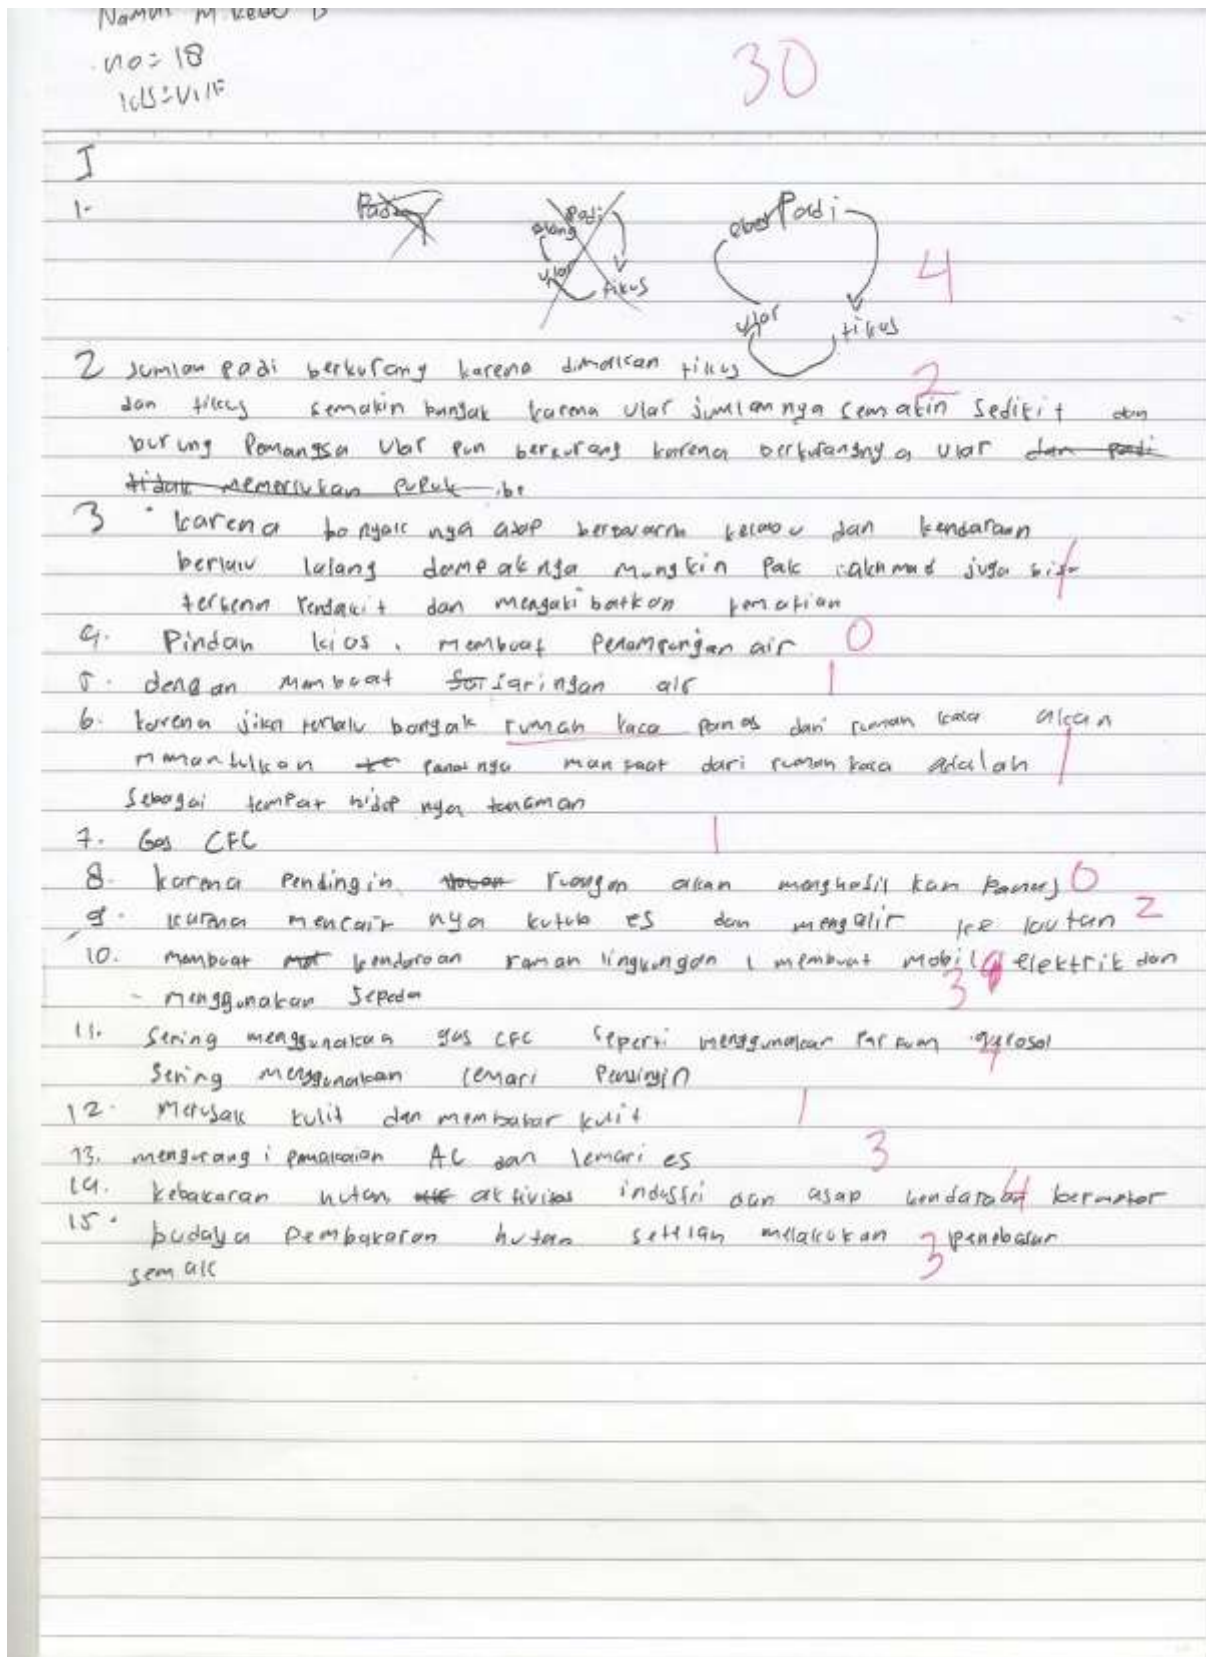 no = 18
kls = VII F
30
I
1.
Padi
Padi
elang
ular
tikus
Padi
ular
tikus
4
2 Jumlah padi berkurang karena dimakan tikus
2
dan tikus semakin banyak karna ular jumlahnya semakin sedikit dan
burung Pemangsa Ular pun berkurang karena berkurangnya ular dan padi
tidak memerlukan pupuk
3 karena banyak nya asap berwarna kelabu dan kendaraan
berlalu lalang dampaknya mungkin Pak rakhmad juga bisa
terkena Penyakit dan mengakibatkan kematian
4. Pindah kios, membuat Penampungan air 0
5. dengan membuat saringan air 1
6. karena jika terlalu banyak rumah kaca panas dari rumah kaca akan
mamantulkan panas nya manfaat dari rumah kaca adalah 1
Sebagai tempat hidup nya tanaman
7. Gas CFC 1
8. karena Pendingin ruangan akan menghasil kan Panas 0
9. karna mencair nya kutub es dan mengalir ke lautan 2
10. membuat kendaraan ramah lingkungan membuat mobil elektrik dan
menggunakan Sepeda 3
11. Sering menggunakan gas CFC Seperti menggunakan Parfum aerosol
Sering menggunakan lemari Pendingin
12. Merusak kulit dan membakar kulit 1
13. mengurangi pemakaian AC dan lemari es 3
14. kebakaran hutan aktivitas industri dan asap kendaraan bermotor 4
15. budaya Pembakaran hutan setelah melakukan penebasan 3
semak